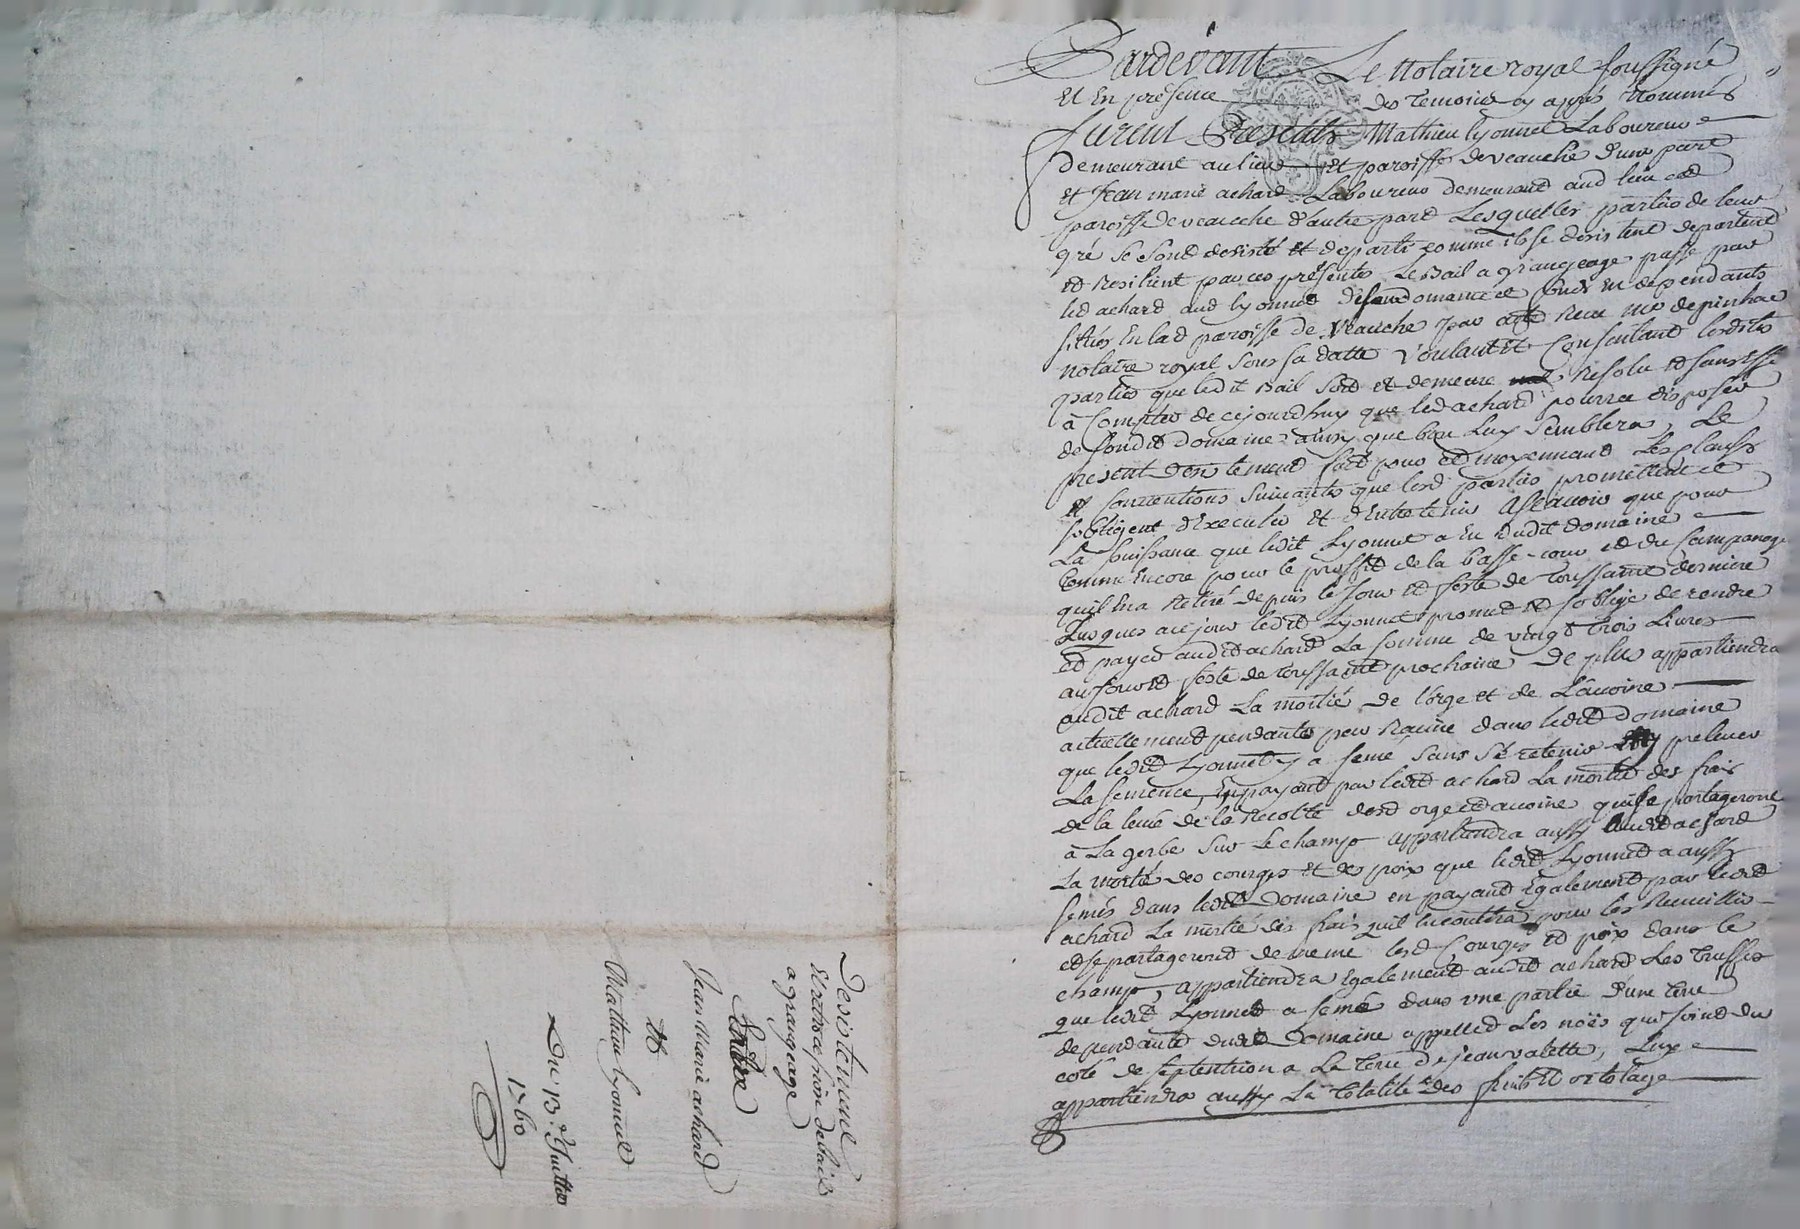 Pardevant Le Notaire royal soussigné
Et En présence des temoins cy après Nommés
Furent Presents Mathieu Lyonnet Laboureur
demeurant au lieu et paroisse de veauche d'une part
et Jean marie achard Laboureur demeurant aud lieu etd
paroisse de veauche d'autre part Lesquelles parties de leur
gré se sont desisté et departi comme ils se desistent departent
et resilient par ces présentes Le Bail a grangeage passé par
led achard aud lyonnet de son domaine et fonds En dépendants
situés En lad paroisse de Veauche par acte recu me depinhac
notaire royal sous sa datte voulant et Consentant lesdites
parties que ledit Bail soit et demeure resolu et sans effet
à Compter de cejourdhuy que led achard pourra disposer
de sondit domaine ainsy que bon Luy semblera, Le
present desistement fait pour et moyennant Les clauses
et Conventions suivantes que lesd parties promettent et
s'obligent d'Executer Et d'Entretenir Ascavoir que pour
La jouissance que ledit Lyonnet a Eu dudit domaine
comme Encore pour le proffit de la basse-cour et du Campanage
quil En a retiré depuis le jour et feste de Toussaint derniere
Jusques a ce jour ledit Lyonnet promet et s'oblige de rendre
et payer audit achard La somme de vingt trois Livres
au jour et feste de toussaint prochaine De plus appartiendra
audit achard La moitié de L'orge et de L'avoine
actuellement pendantes par Racine dans ledit domaine
que ledit Lyonnet y a semé sans s'Y retenir ny prelever
La semence, En payant par ledit achard La moitié des frais
de la levée de la Recolte desd orge et avoine qui se partageront
à La gerbe sur Le champ appartiendra aussy audit achard
La moitié des courges et des poix que ledit Lyonnet a aussy
semés dans ledit Domaine en payant Egalement par ledit
achard La moitié des frais quil En coutera pour les Recueillir
et se partageront de meme lesd Courges et poix dans le
champ, appartiendra Egalement audit achard Les truffes
que ledit Lyonnet a semé dans une partie d'une terre
dependante dudit Domaine appellée Les noës qui joint du
coté de septentrion a La terre de jean valette, Luy
appartiendra aussy La totalité des fruits et ortolage
Desistement
a grangeage
Entre
Jean Marie achard
Et
Mathieu lyonnet
Du 13e Juillet
1760